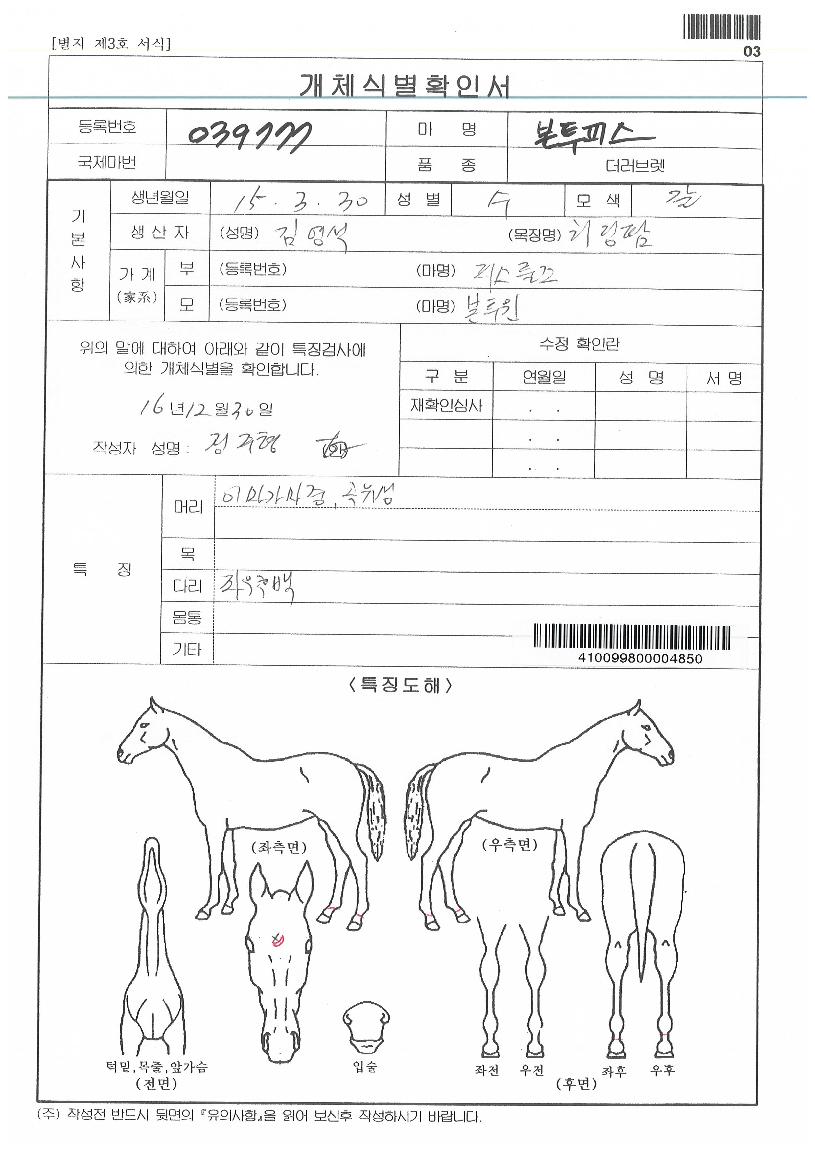 [별지 제3호 서식]
03
개체식별확인서
등록번호 039777 마 명 본투피스
국제마번 품 종 더러브렛
기본사항
생년월일 15. 3. 30 성 별 수 모 색 갈
생 산 자 (성명) 김영석 (목장명)
가 계 (家系) 부 (등록번호) (마명) 피스룰즈
모 (등록번호) (마명) 본투윈
위의 말에 대하여 아래와 같이 특징검사에
의한 개체식별을 확인합니다.
16년 12월 30일
작성자 성명 :
수정 확인란
구 분 연월일 성 명 서 명
재확인심사 . .
. .
. .
특 징
머리
목
다리 좌우후백
몸통
기타
410099800004850
<특징도해>
(좌측면) (우측면)
턱밑,목줄,앞가슴
(전면)
입술
좌전 우전 좌후 우후
(후면)
(주) 작성전 반드시 뒷면의 『유의사항』을 읽어 보신후 작성하시기 바랍니다.